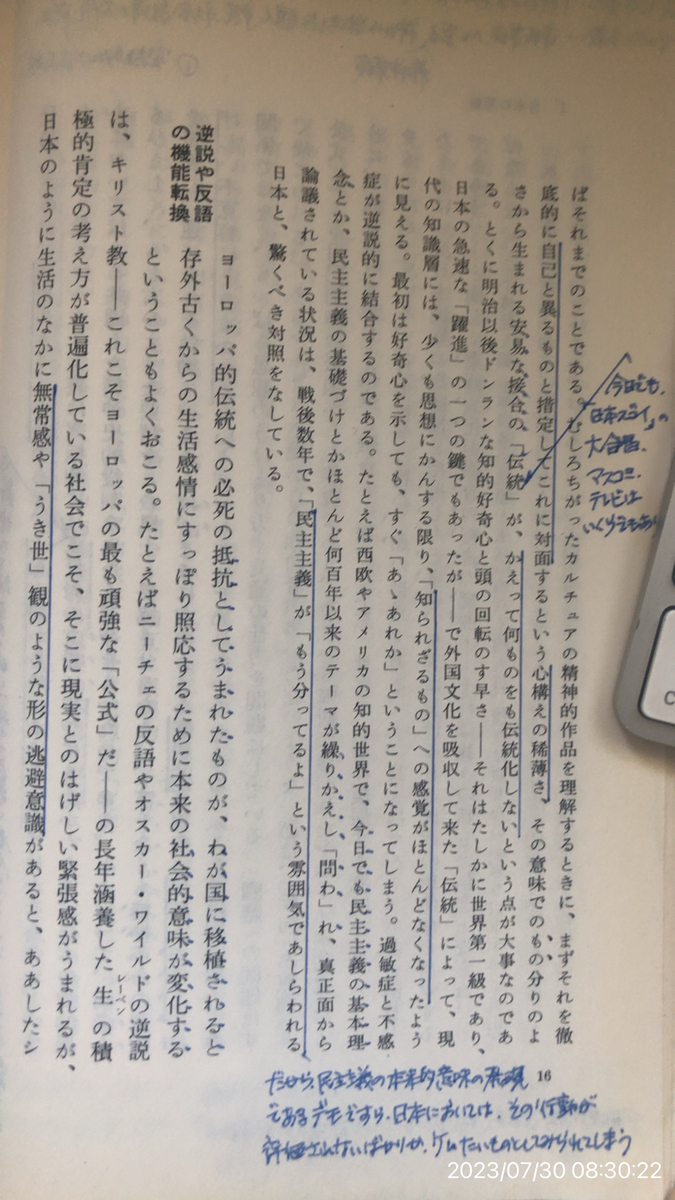 ばそれまでのことである。むしろちがったカルチュアの精神的作品を理解するときに、まずそれを徹
底的に自己と異るものと措定してこれに対面するという心構えの稀薄さ、その意味でのもの分りのよ
さから生まれる安易な接合の「伝統」が、かえって何ものをも伝統化しないという点が大事なのであ
る。とくに明治以後ドンランな知的好奇心と頭の回転のす早さ――それはたしかに世界第一級であり、
日本の急速な「躍進」の一つの鍵でもあったが――で外国文化を吸収して来た「伝統」によって、現
代の知識層には、少くも思想にかんする限り、「知られざるもの」への感覚がほとんどなくなったよう
に見える。最初は好奇心を示しても、すぐ「あゝあれか」ということになってしまう。過敏症と不感
症が逆説的に結合するのである。たとえば西欧やアメリカの知的世界で、今日でも民主主義の基本理
念とか、民主主義の基礎づけとかほとんど何百年以来のテーマが繰りかえし「問わ」れ、真正面から
論議されている状況は、戦後数年で、「民主主義」が「もう分ってるよ」という雰囲気であしらわれる
日本と、驚くべき対照をなしている。
逆説や反語
の機能転換
ヨーロッパ的伝統への必死の抵抗としてうまれたものが、わが国に移植されると
存外古くからの生活感情にすっぽり照応するために本来の社会的意味が変化する
ということもよくおこる。たとえばニーチェの反語やオスカー・ワイルドの逆説
は、キリスト教――これこそヨーロッパの最も頑強な「公式」だ――の長年涵養した生レーベンの積
極的肯定の考え方が普遍化している社会でこそ、そこに現実とのはげしい緊張感がうまれるが、
日本のように生活のなかに無常感や「うき世」観のような形の逃避意識があると、ああしたシ
16
今日でも、
日本スゴイ」の
大合唱、
マスコミ・
テレビは
いくらでもあり
だから、民主主義の本来的意味の表現
であるデモですら、日本においては、その行動が
評価されないばかりか、ケムたいものとしてみられてしまう
2023/07/30 08:30:22